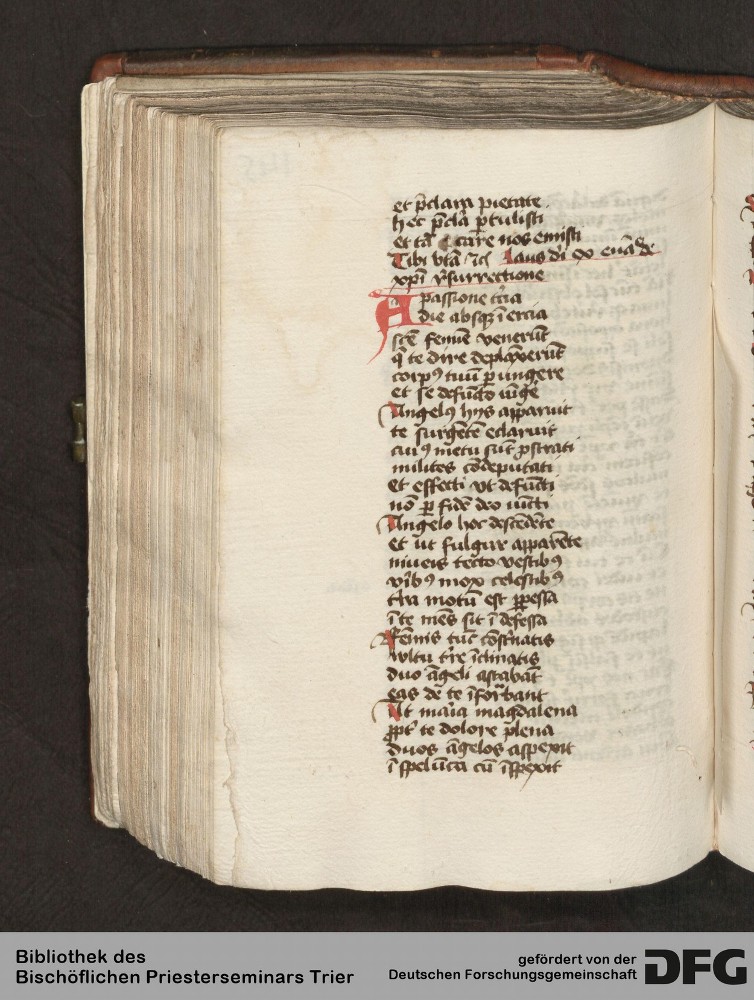 et p̄clara pietate.
hec p̄cla ꝑtulisti
et tā care nos emisti
Tibi vtā ꝛc̄ Laus di ex euā de
xp̄i r̄surrectione
A passione tr̄ia
die absqꝫ īercia
sc̄e femīe venerūt
q̄ te dire deplāxerūt
corpꝰ tuū ꝑungere
et se defūcto iūge
Angelꝰ hijs apparuit
te surgētē eclaruit
cuiꝰ metu sūt ꝓstrati
milites cōdeputati
et effecti vt defūcti
nō ꝑ fidē deo iūcti
Angelo hoc descēdēte
et ut fulgur apparēte
niueis tecto vestibꝰ
vīibꝰ mox celestibꝰ
tr̄ra motū est ꝑpessa
ī te mēs sit īdefessa
Femīs tūc cōst̄natis
wltu tr̄re īclinatis
duo āgeli astabāt
eas de te īformabant
At maria magdalena
ꝓpt̄ te dolore plena
duos āgelos aspexit
ī spelūca cū īspexit
Bibliothek des
Bischöflichen Priesterseminars Trier
gefördert von der
Deutschen Forschungsgemeinschaft
DFG